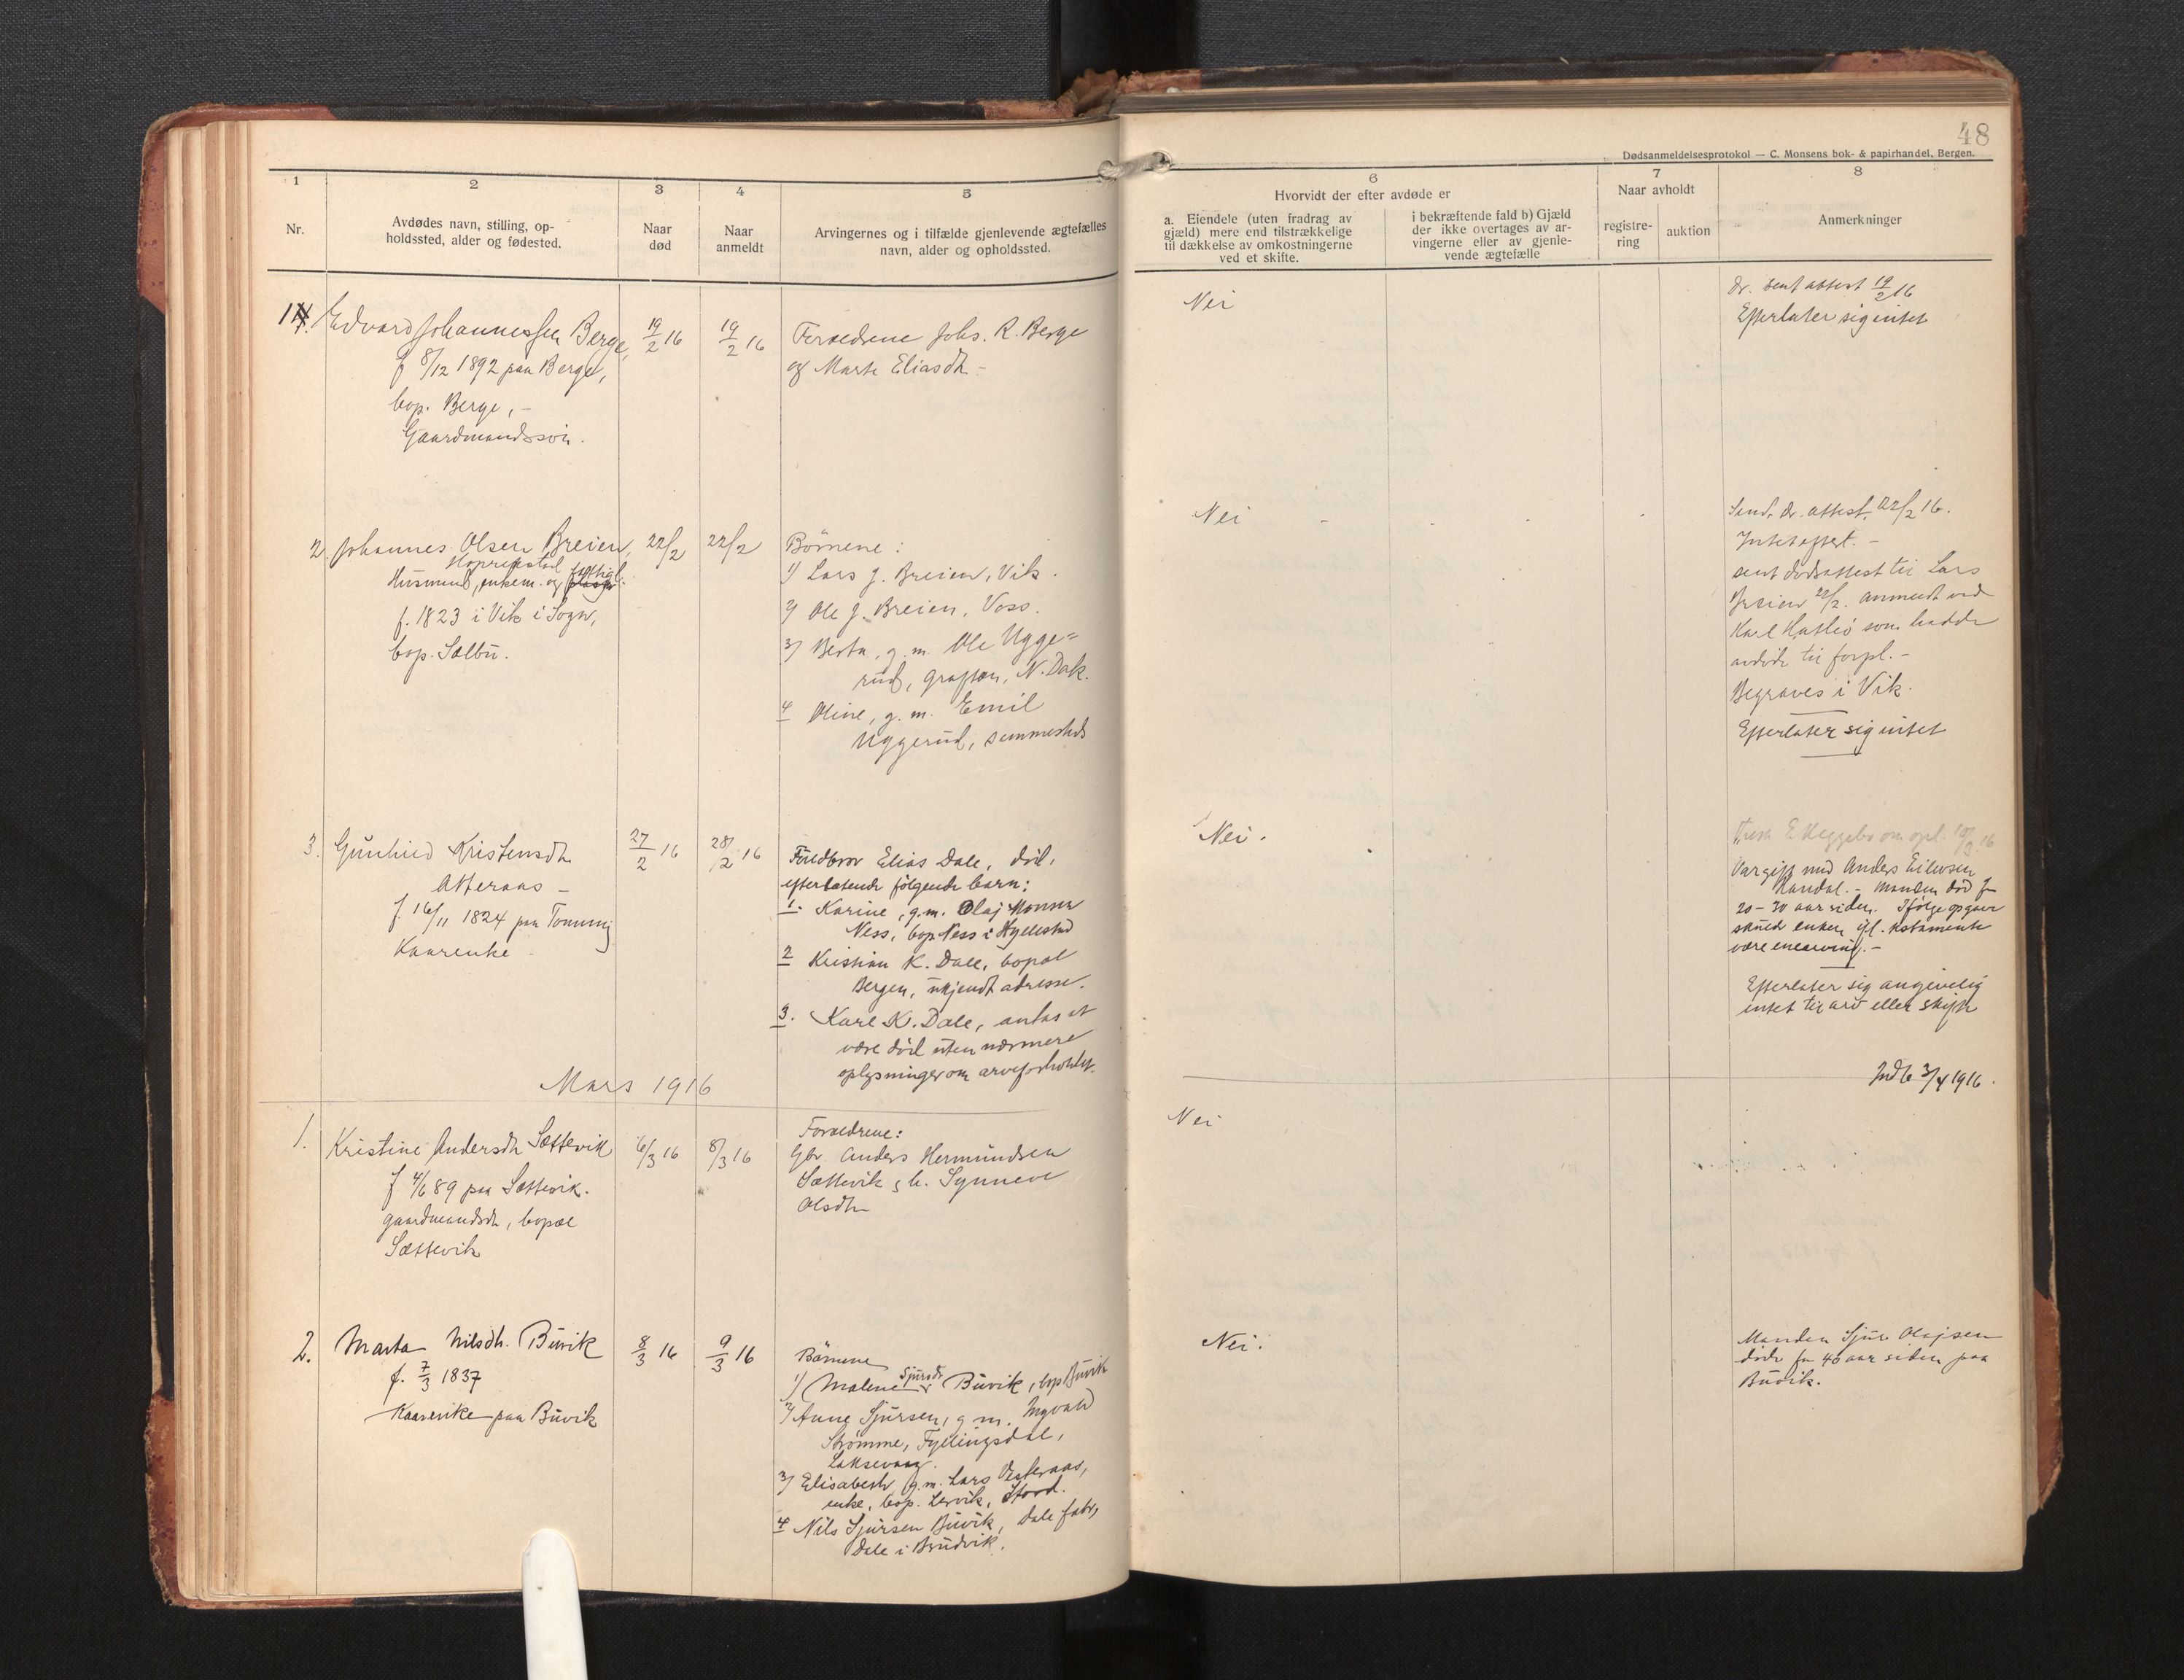 48
Dødsanmeldelsesprotokol — C. Monsens bok- & papirhandel, Bergen.
1
2
3
4
5
6
7
8
Nr.
Avdødes navn, stilling, op-
holdssted, alder og fødested.
Naar
død
Naar
anmeldt
Arvingernes og i tilfælde gjenlevende ægtefælles
navn, alder og opholdssted.
Hvorvidt der efter avdøde er
a. Eiendele (uten fradrag av
gjæld) mere end tilstrækkelige
til dækkelse av omkostningerne
ved et skifte.
i bekræftende fald b) Gjæld
der ikke overtages av ar-
vingerne eller av gjenle-
vende ægtefælle
Naar avholdt
registre-
ring
auktion
Anmerkninger
1. Edvard Johannessen Berge,
f 8/12 1892 paa Berge,
bop. Berge, -
Gaardmandssøn.
19/2 16
19/2 16
Forældrene Johs. R. Berge
og Marte Eliasdtr -
Nei
Dr. sent attest 19/2 16
Efterlater sig intet
2. Johannes Olsen Breien,
Hoprekstad
Husmand, enkem. og fattigl.
f. 1823 i Vik i Sogn,
bop. Sælbu.
22/2
22/2
Børnene:
1) Lars J. Breien, Vik.
2) Ole J. Breien, Voss.
3) Berta, g.m. Ole Ugge=
rud, Grafton, N. Dak.
4 Oline, g.m. Emil
Uggerud, sammesteds
Nei
Send. dr. attest. 22/2 16.
Intet efterl. -
sent dødsattest til Lars
Breien 22/2. anmeldt ved
Karl som hadde
avdøde til forpl. -
Begraves i Vik.
Efterlater sig intet
3. Gunhild Kristensdtr
Atteraas -
f. 16/11 1824 paa
Kaarenke
27/2 16
28/2 16
Fuldbror Elias Dale, død,
efterlatende følgende barn:
1. Karine, g.m. Olaj Monsen
Ness, bop Ness i Hyllestad
2 Kristian K. Dale, bopæl
Bergen, ukjendt adresse.
3. Karl K. Dale, antas at
være død uten nærmere
oplysninger om arveforholdet.
Nei.
om opl. 16
Var gift med Anders Eilevsen
- Manden død for
20-30 aar siden. Ifølge opgave
skulde enken ifl. testamente
være enearving. -
Efterlater sig angivelig
intet til arv eller skifte
Mars 1916
Indb 3/4 1916.
1. Kristine Andersdtr Sættevik
f 4/6 89 paa Sættevik.
gaardmandsdtr, bopæl
Sættevik
6/3 16
8/3 16
Forældrene:
Gbr. Anders Hermundsen
Sættevik & h. Synneve
Olsdtr
Nei
2. Marta Nilsdtr. Buvik
f. 7/3 1837
Kaarenke paa Buvik
8/3 16
9/3 16
Børnene
1) Malene Sjursdtr Buvik, bop Buvik
2) Anne Sjursen, g m. Ingvald
Strømme, Fyllingsdal,
Laksevaag.
3) Elisabeth, g.m. Lars Vesteraas,
enke, bop. Lervik, Stord.
4 Nils Sjursen Buvik, Dale fabr,
Dale i Brudvik.
Nei.
Manden Sjur Olajsen
døde for 40 aar siden paa
Buvik.